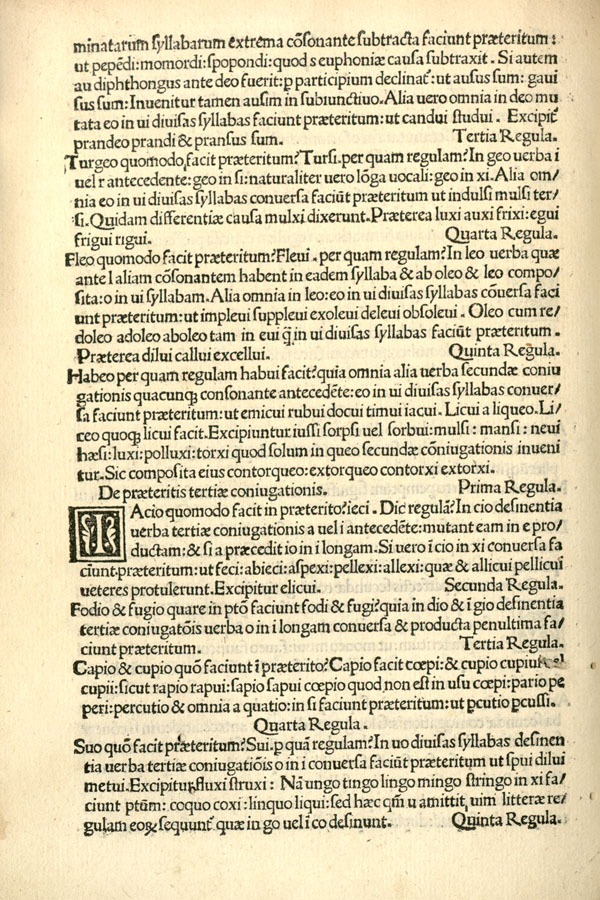 minatarum syllabarum extrema cõsonante subtracta faciunt præteritum:
ut pepẽdi:momordi:spopondi:quod s euphoniæ causa subtraxit. Si autem
au diphthongus ante deo fuerit:ꝑ participium declinat᷑:ut ausus sum: gaui
sus sum:Inuenitur tamen ausim in subiunctiuo.Alia uero omnia in deo mu
tata eo in ui diuisas syllabas faciunt præteritum:ut candui studui. Excipit᷑
prandeo prandi & pransus sum. Tertia Regula.
Turgeo quomodo facit præteritum?Tursi.per quam regulam?In geo uerba i
uel r antecedente:geo in si:naturaliter uero lõga uocali:geo in xi.Alia om/
nia eo in ui diuisas syllabas conuersa faciũt præteritum ut indulsi mulsi ter/
si.Quidam differentiæ causa mulxi dixerunt.Præterea luxi auxi frixi:egui
frigui rigui. Quarta Regula.
Fleo quomodo facit præteritum?Fleui. per quam regulam?In leo uerba quæ
ante l aliam cõsonantem habent in eadem syllaba & ab oleo & leo compo/
sita:o in ui syllabam.Alia omnia in leo:eo in ui diuisas syllabas cõuersa faci
unt præteritum:ut impleui suppleui exoleui deleui obsoleui. Oleo cum re/
doleo adoleo aboleo tam in eui q̃ in ui diuisas syllabas faciũt præteritum.
Præterea dilui callui excellui. Quinta Regula.
Habeo per quam regulam habui facit?quia omnia alia uerba secundæ coniu
gationis quacunqꝫ consonante antecedẽte:eo in ui diuisas syllabas conuer/
sa faciunt præteritum:ut emicui rubui docui timui iacui. Licui a liqueo.Li/
ceo quoqꝫ licui facit.Excipiuntur iussi sorpsi uel sorbui:mulsi: mansi: neui
hæsi:luxi:polluxi:torxi quod solum in queo secundæ cõniugationis inueni
tur.Sic composita eius contorqueo:extorqueo contorxi extorxi.
De præteritis tertiæ coniugationis. Prima Regula.
IAcio quomodo facit in præterito?ieci. Dic regulã?In cio desinentia
uerba tertiæ coniugationis a uel i antecedẽte:mutant eam in e pro/
ductam:& si a præcedit io in i longam.Si uero i cio in xi conuersa fa
ciunt præteritum:ut feci:abieci:aspexi:pellexi:allexi:quæ & allicui pellicui
ueteres protulerunt.Excipitur elicui. Secunda Regula.
Fodio & fugio quare in ptõ faciunt fodi & fugi?quia in dio & ĩ gio desinentia
tertiæ coniugatõis uerba o in i longam conuersa & producta penultima fa/
ciunt præteritum. Tertia Regula.
Capio & cupio quõ faciunt ĩ præterito?Capio facit cœpi:& cupio cupiui uel
cupii:sicut rapio rapui:sapio sapui cœpio quod non est in usu cœpi:pario pe
peri:percutio & omnia a quatio:in si faciunt præteritum:ut ꝑcutio ꝑcussi.
Quarta Regula.
Suo quõ facit præteritum?Sui.ꝑ quã regulam?In uo diuisas syllabas desinen
tia uerba tertiæ coniugatiõis o in i conuersa faciũt præteritum ut spui dilui
metui.Excipitur fluxi struxi: Nã ungo tingo lingo mingo stringo in xi fa/
ciunt ptũm: coquo coxi:linquo liqui:sed hæc qm̃ u amittit uim litteræ re/
gulam eoꝝ sequunt᷑ quæ in go uel ĩ co desinunt. Quinta Regula.